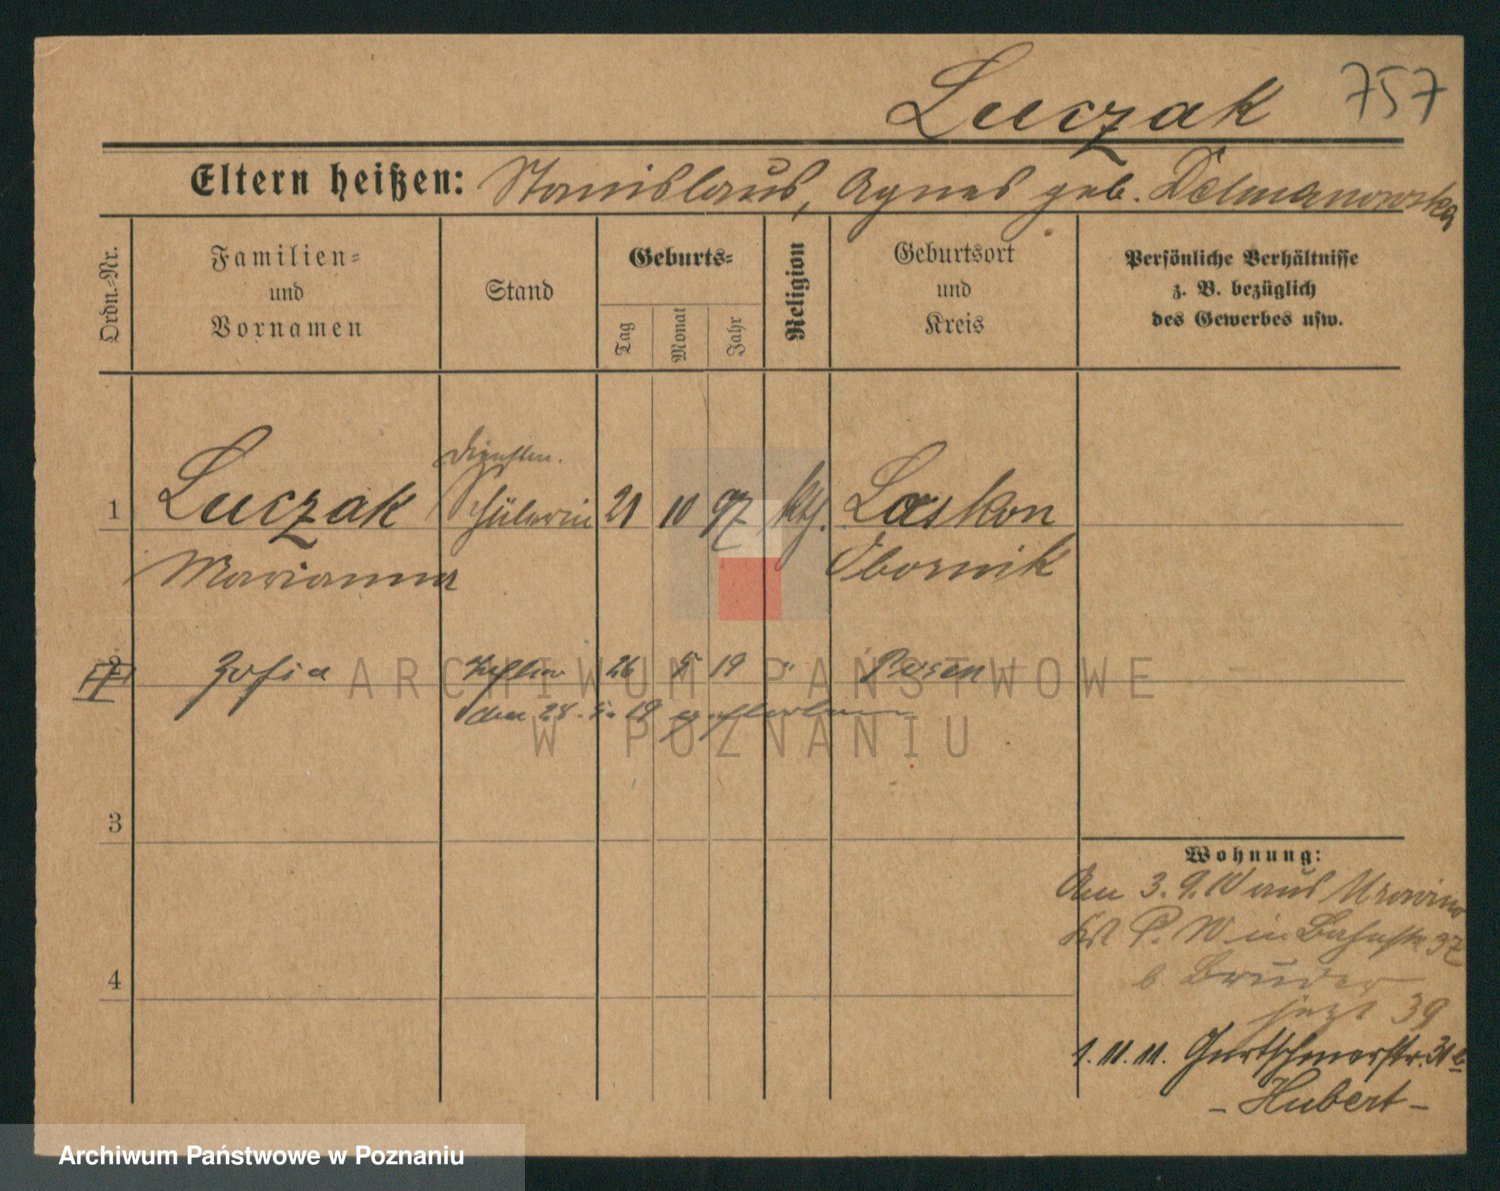 Luczak 757
Eltern heißen: Stanislaus, Agnes geb. Delmanowska
Ordn.-Nr.
Familien- und Vornamen
Stand
Geburts-
Tag
Monat
Jahr
Religion
Geburtsort und Kreis
Persönliche Verhältnisse z. B. bezüglich des Gewerbes usw.
Dienstm.
1 Luczak Schülerin 21 10 97 kth. Laskon
Marianna Obornik
2 Zofia Tochter 26 5 19 " Posen
den 28.5.19 gestorben
3
4
Wohnung:
Am 3.9.10 aus Mrowino
Kr. P. W in Bahnstr. 37
b. Bruder
jetzt 39
1.11.11. Gurtschinerstr. 31 b
- Hubert -
ARCHIWUM PAŃSTWOWE
W POZNANIU
Archiwum Państwowe w Poznaniu